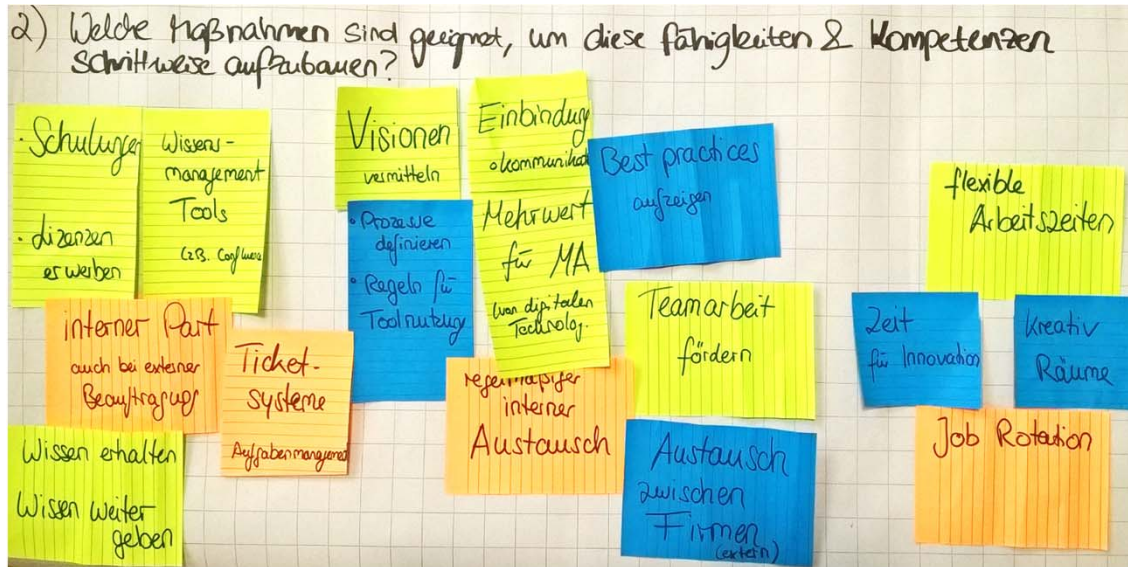 2) Welche Maßnahmen sind geeignet, um diese Fähigkeiten & Kompetenzen
schrittweise aufzubauen?
• Schulungen
• Lizenzen
erwerben
Wissens-
management
Tools
(zB. Confluence
Visionen
vermitteln
Einbindung
o kommunikat
Best practices
aufzeigen
• Prozesse
definieren
• Regeln für
Toolnutzug
Mehrwert
für MA
(von digitalen
Technolog.
flexible
Arbeitszeiten
interner Part
auch bei externer
Beauftragug
Ticket-
systeme
Aufgabenmanagement
Teamarbeit
fördern
Zeit
für Innovation
Kreativ
Räume
regelmäßiger
interner
Austausch
Job Rotation
Wissen erhalten
Wissen weiter
geben
Austausch
zwischen
Firmen
(extern)